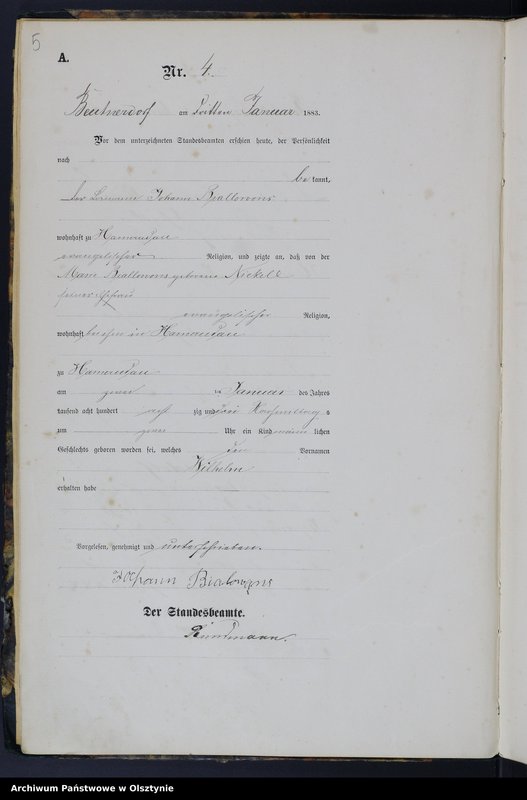 5
A.
Nr. 4.
Beutnerdorf am dritten Januar 1883.
Vor dem unterzeichneten Standesbeamten erschien heute, der Persönlichkeit
nach
be kannt,
der Johann Biallowons
wohnhaft zu
evangelischer Religion, und zeigte an, daß von der
Marie Biallowons geborene Nickell
seiner Ehefrau
evangelischer Religion,
wohnhaft bei ihm in
zu
am zwei ten Januar des Jahres
tausend acht hundert acht zig und drei Nachmittag s
um zwei Uhr ein Kind männ lichen
Geschlechts geboren worden sei, welches den Vornamen
Wilhelm
erhalten habe
Vorgelesen, genehmigt und unterschrieben.
Johann Bialowons
Der Standesbeamte.
Archiwum Państwowe w Olsztynie